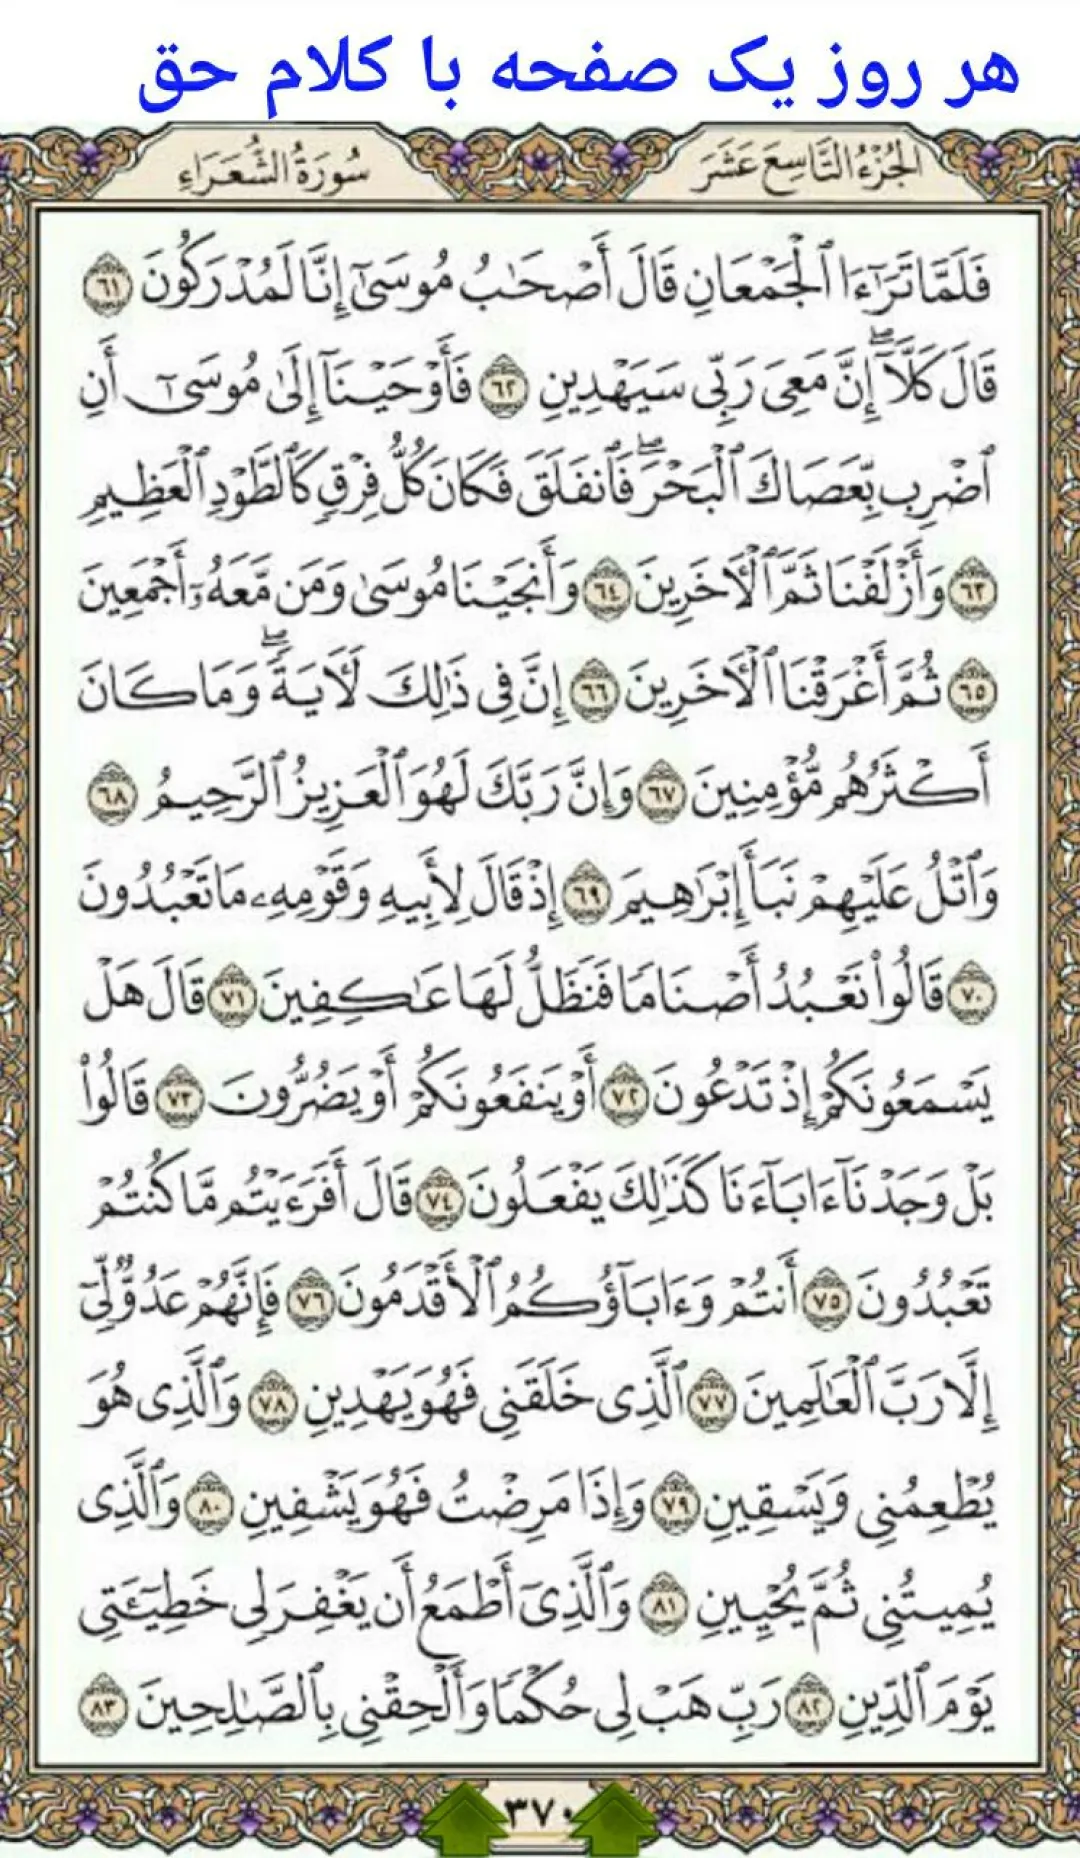 هر روز یک صفحه با کلام حق
الجُزْءُ التَّاسِعَ عَشَرَ
سُورَةُ الشُّعَرَاءِ
فَلَمَّا تَرَٰٓءَا ٱلْجَمْعَانِ قَالَ أَصْحَٰبُ مُوسَىٰٓ إِنَّا لَمُدْرَكُونَ ٦١
قَالَ كَلَّآۖ إِنَّ مَعِىَ رَبِّى سَيَهْدِينِ ٦٢ فَأَوْحَيْنَآ إِلَىٰ مُوسَىٰٓ أَنِ
ٱضْرِب بِّعَصَاكَ ٱلْبَحْرَۖ فَٱنفَلَقَ فَكَانَ كُلُّ فِرْقٍ كَٱلطَّوْدِ ٱلْعَظِيمِ
٦٣ وَأَزْلَفْنَا ثَمَّ ٱلْأَخَرِينَ ٦٤ وَأَنجَيْنَا مُوسَىٰ وَمَن مَّعَهُۥٓ أَجْمَعِينَ
٦٥ ثُمَّ أَغْرَقْنَا ٱلْأَخَرِينَ ٦٦ إِنَّ فِى ذَٰلِكَ لَأَيَةًۖ وَمَا كَانَ
أَكْثَرُهُم مُّؤْمِنِينَ ٦٧ وَإِنَّ رَبَّكَ لَهُوَ ٱلْعَزِيزُ ٱلرَّحِيمُ ٦٨
وَٱتْلُ عَلَيْهِمْ نَبَأَ إِبْرَٰهِيمَ ٦٩ إِذْ قَالَ لِأَبِيهِ وَقَوْمِهِۦ مَا تَعْبُدُونَ
٧٠ قَالُوا۟ نَعْبُدُ أَصْنَامًا فَنَظَلُّ لَهَا عَٰكِفِينَ ٧١ قَالَ هَلْ
يَسْمَعُونَكُمْ إِذْ تَدْعُونَ ٧٢ أَوْ يَنفَعُونَكُمْ أَوْ يَضُرُّونَ ٧٣ قَالُوا۟
بَلْ وَجَدْنَآ ءَابَآءَنَا كَذَٰلِكَ يَفْعَلُونَ ٧٤ قَالَ أَفَرَءَيْتُم مَّا كُنتُمْ
تَعْبُدُونَ ٧٥ أَنتُمْ وَءَابَآؤُكُمُ ٱلْأَقْدَمُونَ ٧٦ فَإِنَّهُمْ عَدُوٌّ لِّىٓ
إِلَّا رَبَّ ٱلْعَٰلَمِينَ ٧٧ ٱلَّذِى خَلَقَنِى فَهُوَ يَهْدِينِ ٧٨ وَٱلَّذِى هُوَ
يُطْعِمُنِى وَيَسْقِينِ ٧٩ وَإِذَا مَرِضْتُ فَهُوَ يَشْفِينِ ٨٠ وَٱلَّذِى
يُمِيتُنِى ثُمَّ يُحْيِينِ ٨١ وَٱلَّذِىٓ أَطْمَعُ أَن يَغْفِرَ لِى خَطِيٓـَٔتِى
يَوْمَ ٱلدِّينِ ٨٢ رَبِّ هَبْ لِى حُكْمًا وَأَلْحِقْنِى بِٱلصَّٰلِحِينَ ٨٣
٣٧٠